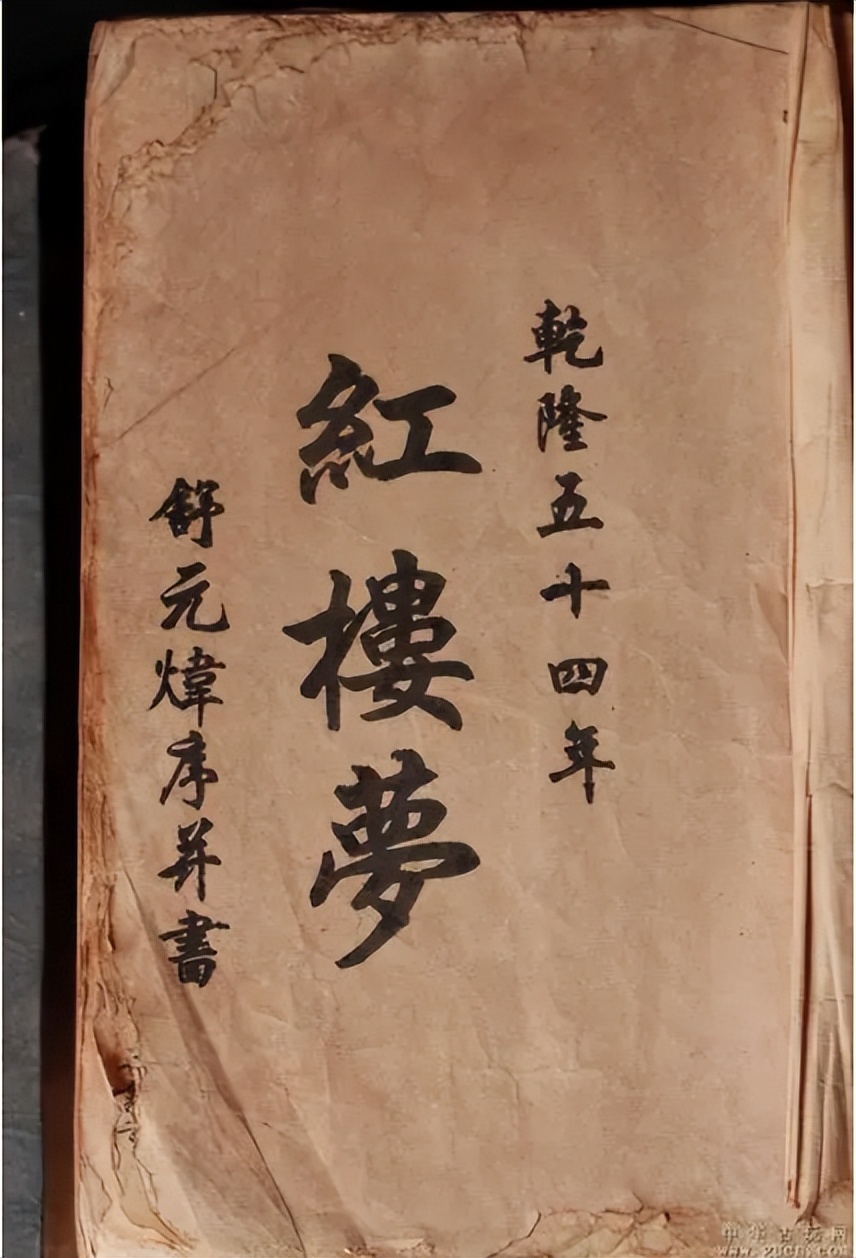 乾隆五十四年
紅樓夢
舒元煒序并書
中华古玩网